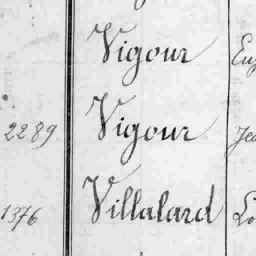 Vigour
2289 Vigour
1376 Villalard